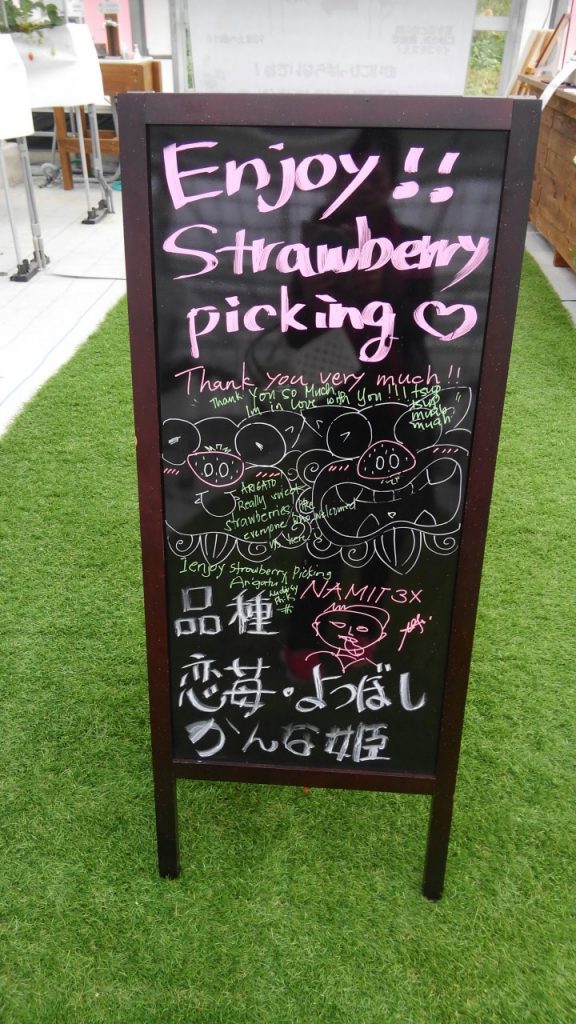 Enjoy!!
Strawberry
picking ♡
Thank you very much!!
Thank You So Much
Im in Love with You!!!
tsup
tsup
muah
muah
ARIGATO
Really nice
strawberries
everyone who welcomed
us here
I enjoy strawberry Picking
Arigatu
NAMIT3X
品種
恋苺・よつぼし
かんな姫